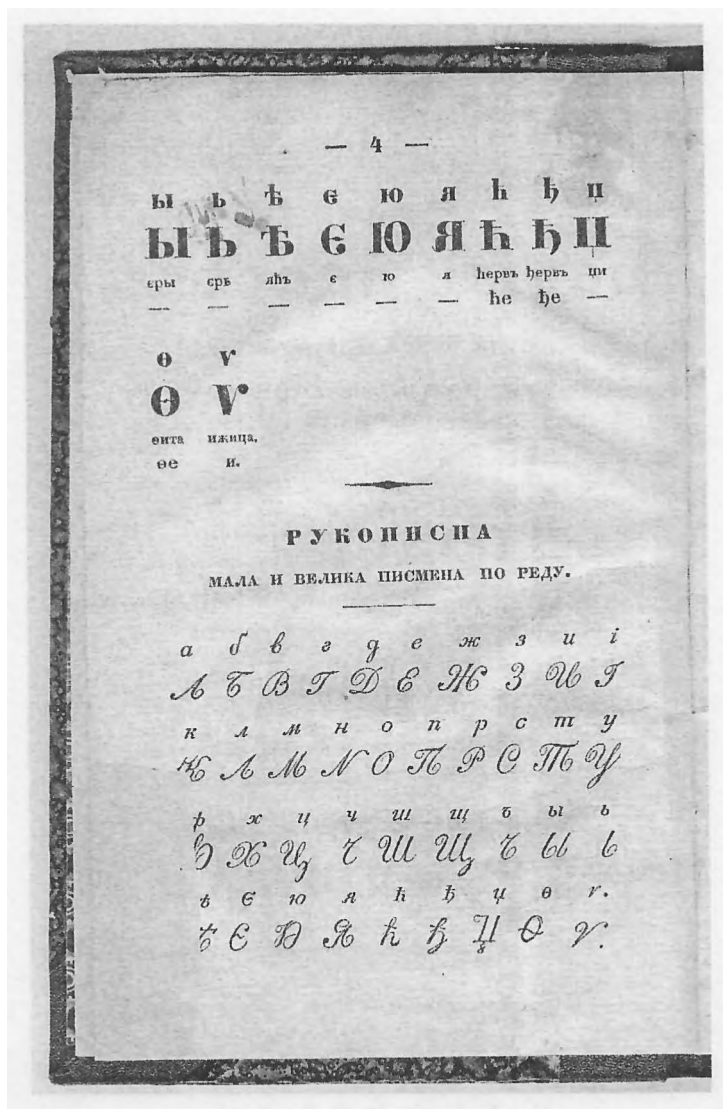 — 4 —
ы ь ѣ є ю я ћ ђ џ
Ы Ь Ѣ Є Ю Я Ћ Ђ Џ
еры єрь яћь є ю я ћервъ ђервъ џи
— — — — — — ће ђе —
ѳ ѵ
Ѳ Ѵ
ѳита ижица.
ѳе и.
РУКОПИСНА
МАЛА И ВЕЛИКА ПИСМЕНА ПО РЕДУ.
а б в г д е ж з и і
А Б В Г Д Е Ж З И І
к л м н о п р с т у
К Л М N О П Р С Т У
ф х ц ч ш щ ъ ы ь
Ф Х Ц Ч Ш Щ Ъ Ы Ь
ѣ є ю я ћ ђ џ ѳ ѵ.
Ѣ Є Ю Я Ћ Ђ Џ Ѳ Ѵ.